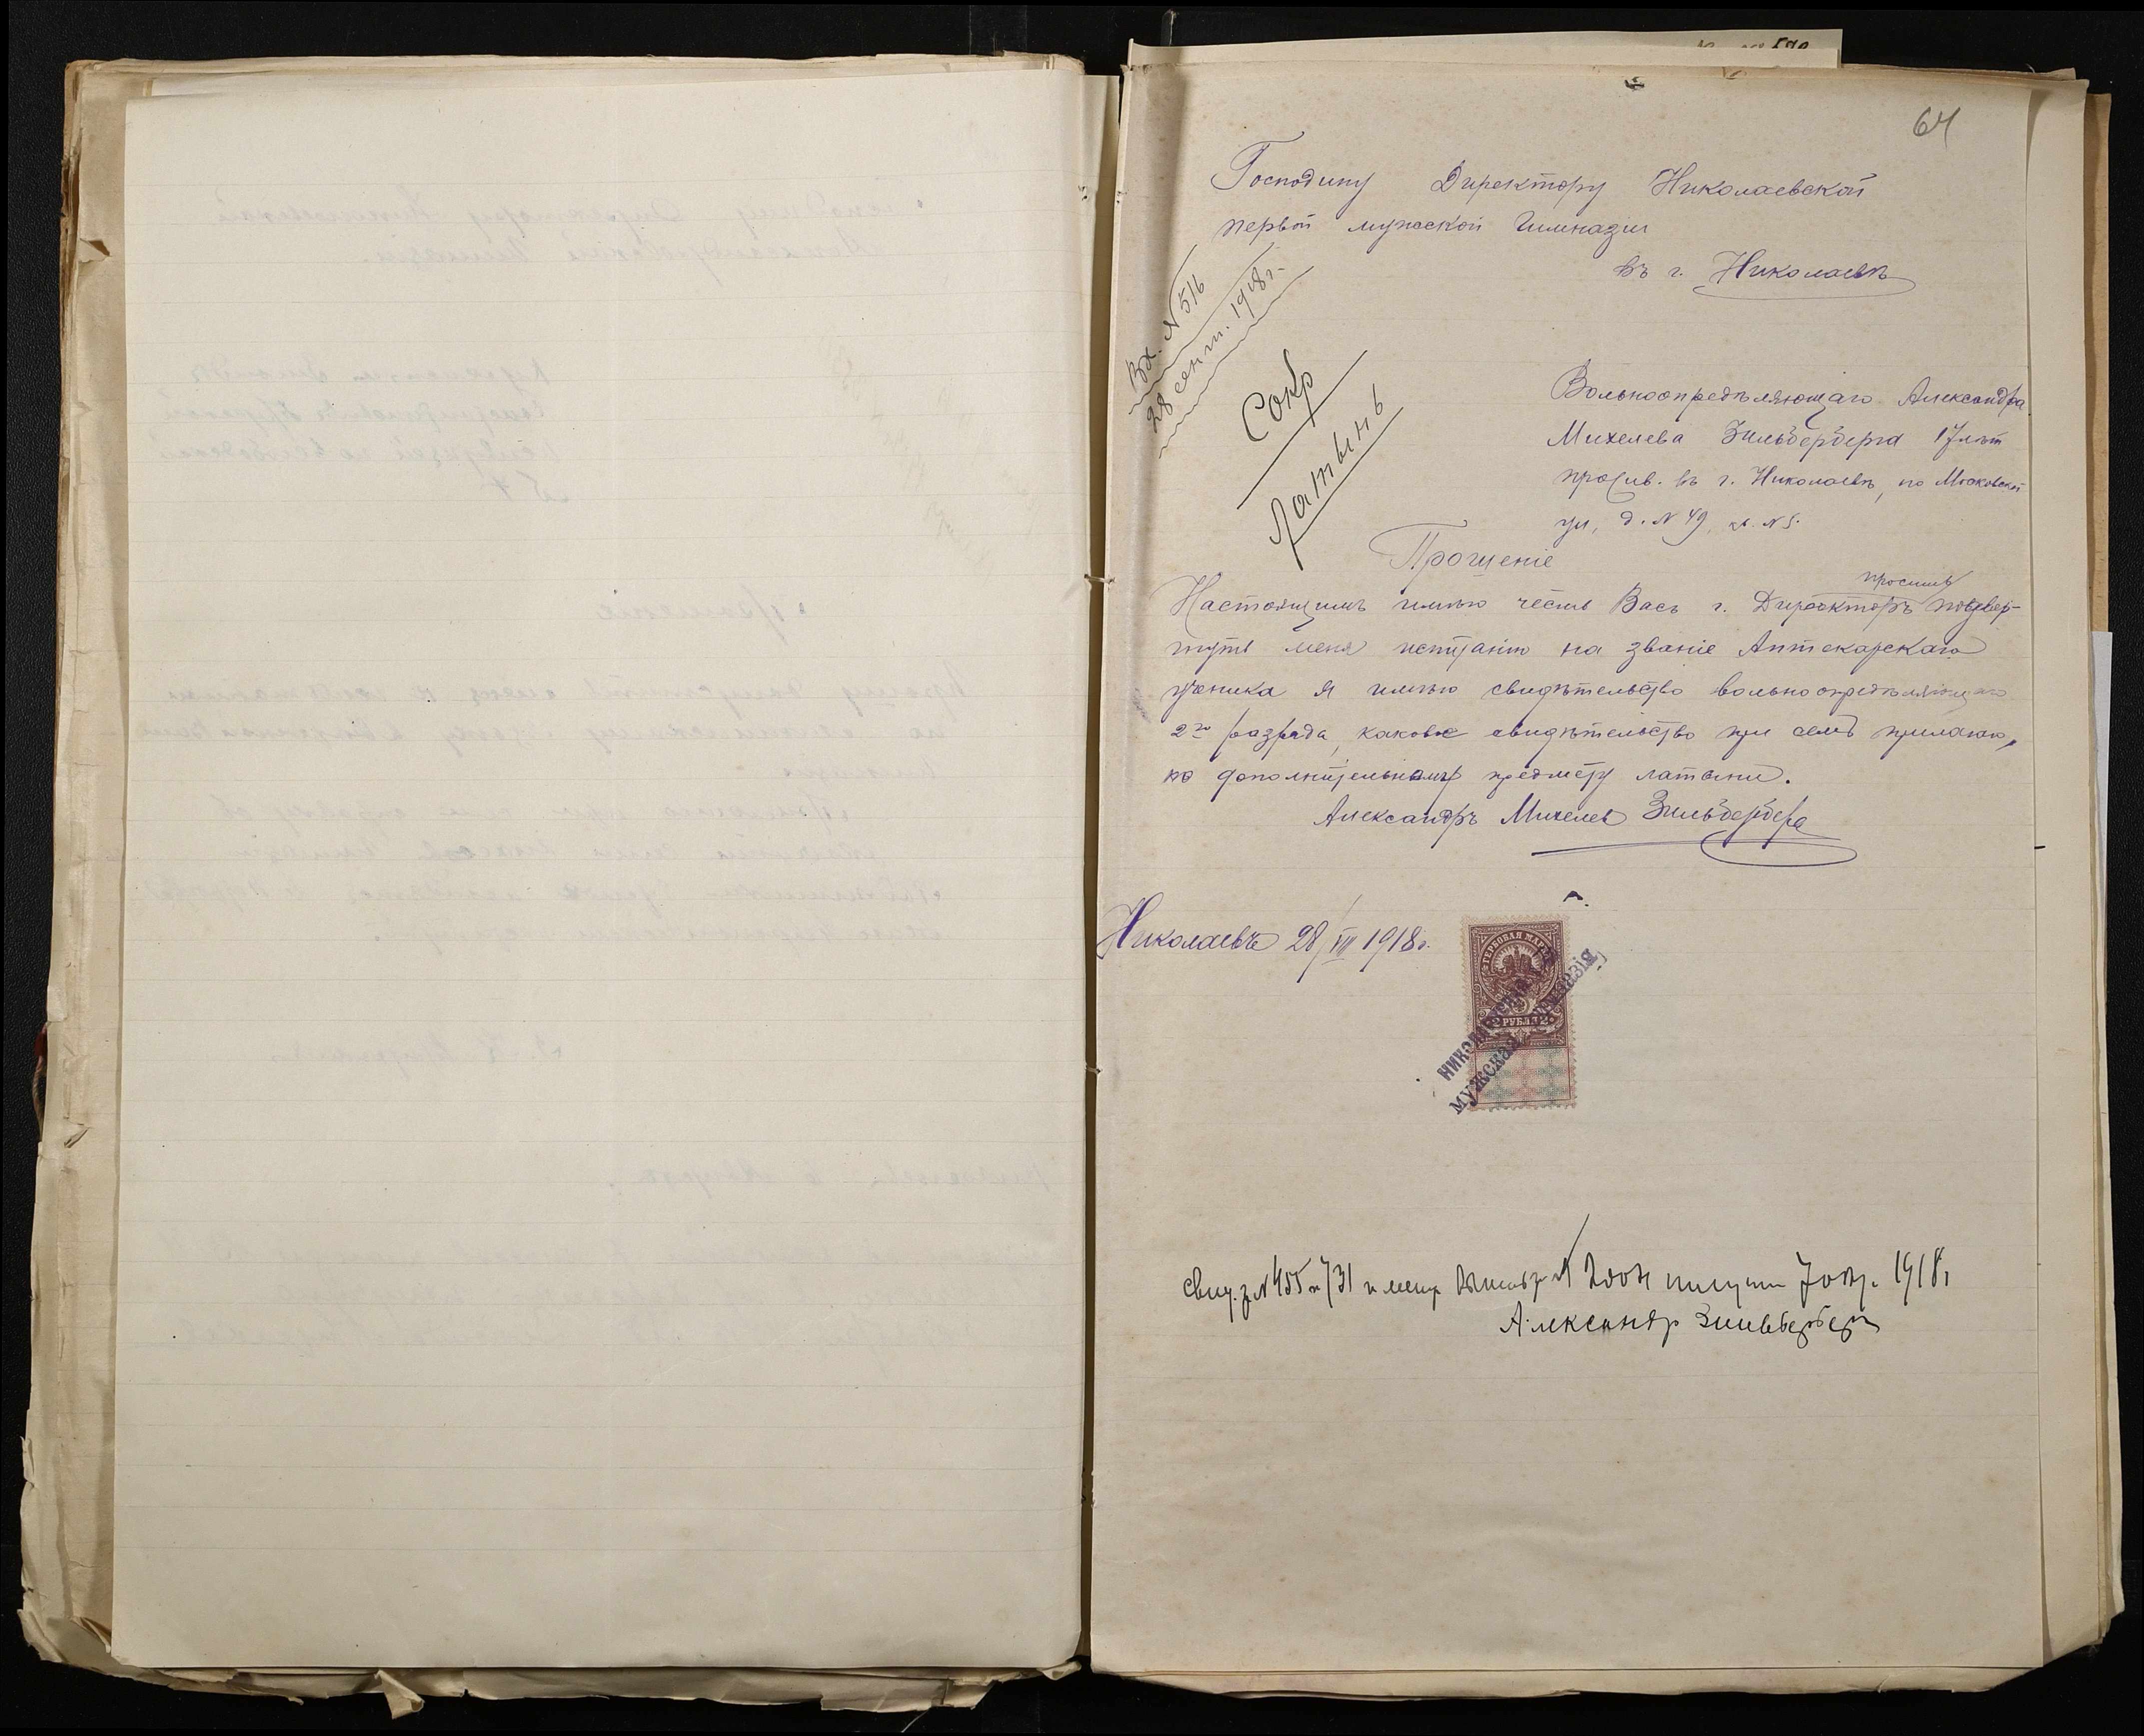 64
Господину Директору Николаевской
первой мужской Гимназіи
въ г. Николаевѣ
Вх. N 516
28 сент. 1918 г.
Сокр
Латынь
Вольноопредѣляющаго Александра
Михелева Зильберберга 17 лѣт
прожив. въ г. Николаевѣ, по Московской
ул, д. N 49, кв. N 5.
Прошеніе
просить
Настоящимъ имѣю честь Васъ г. Директоръ подвер-
гнуть меня испытанію на званіе Аптекарскаго
ученика я имѣю свидѣтельство вольноопредѣляющаго
2го разряда, каковое свидѣтельство при семъ прилагаю,
по дополнительному предмету латыни.
Александръ Михелев Зильберберг
Николаевъ 28/VIII 1918 г.
ГЕРБОВАЯ МАРКА
2 РУБЛЯ 2
НИКОЛАЕВСКАЯ
МУЖСКАЯ ГИМНАЗІЯ
Свид. за N 455 и 731 и метр. N получил 7 окт. 1918 г
Александр Зильберберг